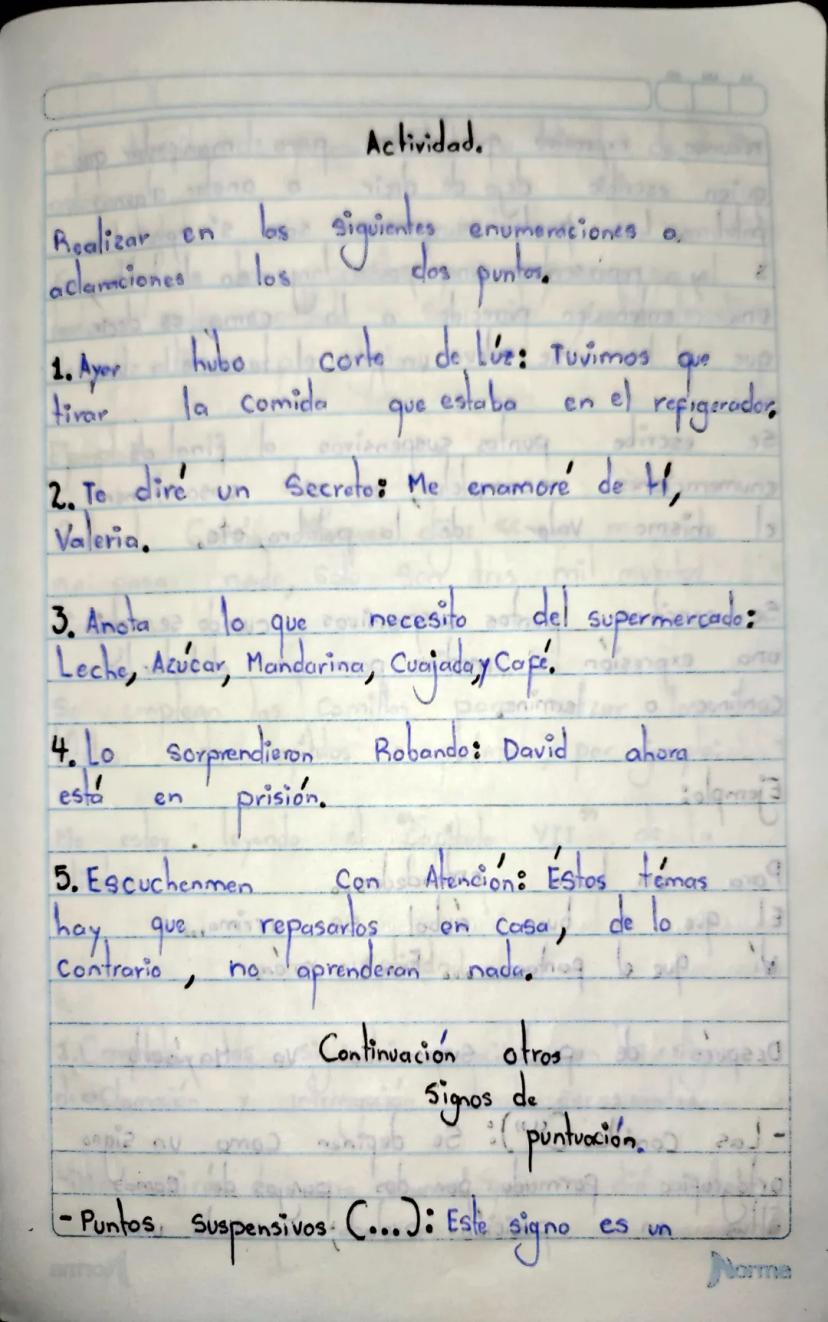 Actividad.
Realizar en las siguientes enumeraciones o
aclaraciones los dos puntos.
1. Ayer hubo corte de lúz: Tuvimos que
tirar la comida que estaba en el refigerador.
2. Te diré un Secreto: Me enamoré de tí,
Valeria.
3. Anota lo que necesito del supermercado:
Leche, Azúcar, Mandarina, Cuajada, y Café.
4. Lo sorprendieron Robando: David ahora
está en prisión.
5. Escuchenmen con Atención: Éstos témas
hay que repasarlos en casa, de lo
Contrario, no aprenderan nada.
Continuación otros
Signos de
puntuación.
- Puntos suspensivos (...): Este signo es un
Norma